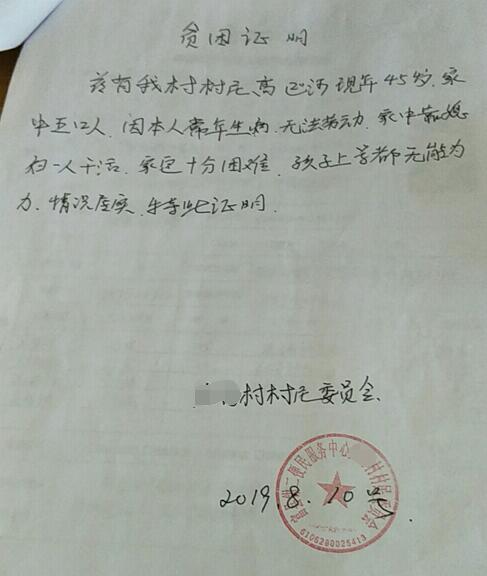 贫困证明
兹有我村村民高 现年45岁.家
中五口人,因本人常年生病.无法劳动.家中靠媳
妇一人干活.家庭十分困难.孩子上学都无能为
力.情况属实.特此证明.
村村民委员会
2019.8.10号
便民服务中心 村村民委员会
6106280025413